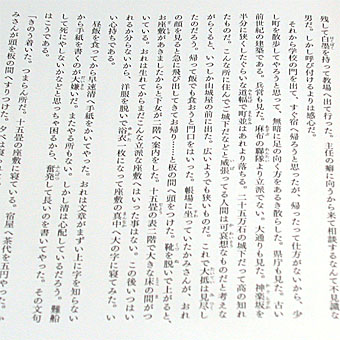 残して白墨を持って教場へ出て行った。主任の癖に向うから来て相談するなんて不見識な
男だ。しかし呼び付けるよりは感心だ。
それから学校の門を出て、すぐ宿へ帰ろうと思ったが、帰ったって仕方がないから、少
し町を散歩してやろうと思って、無暗に足の向く方をあるき散らした。県庁も見た。古い
前世紀の建築である。兵営も見た。麻布の聯隊より立派でない。大通りも見た。神楽坂を
半分に狭くしたぐらいな道幅で町並はあれより落ちる。二十五万石の城下だって高の知れ
たものだ。こんな所に住んでご城下だなどと威張ってる人間は可哀想なものだと考えな
がらくると、いつしか山城屋の前に出た。広いようでも狭いものだ。これで大抵は見尽し
たのだろう。帰って飯でも食おうと門口をはいった。帳場に坐っていたかみさんが、おれ
の顔を見ると急に飛び出してきてお帰り……と板の間へ頭をつけた。靴を脱いで上がると、
お座敷があきましたからと下女が二階へ案内をした。十五畳の表二階で大きな床の間がつ
いている。おれは生れてからまだこんな立派な座敷へはいった事はない。この後いつはい
れるか分らないから、洋服を脱いで浴衣一枚になって座敷の真中へ大の字に寝てみた。い
い心持ちである。
昼飯を食ってから早速清へ手紙をかいてやった。おれは文章がまずい上に字を知らない
から手紙を書くのが大嫌いだ。またやる所もない。しかし清は心配しているだろう。難船
して死にやしないかなどと思っちゃ困るから、奮発して長いのを書いてやった。その文句
はこうである。
「きのう着いた。つまらん所だ。十五畳の座敷に寝ている。宿屋へ茶代を五円やった。か
みさんが頭を板の間へすりつけた。夕べは